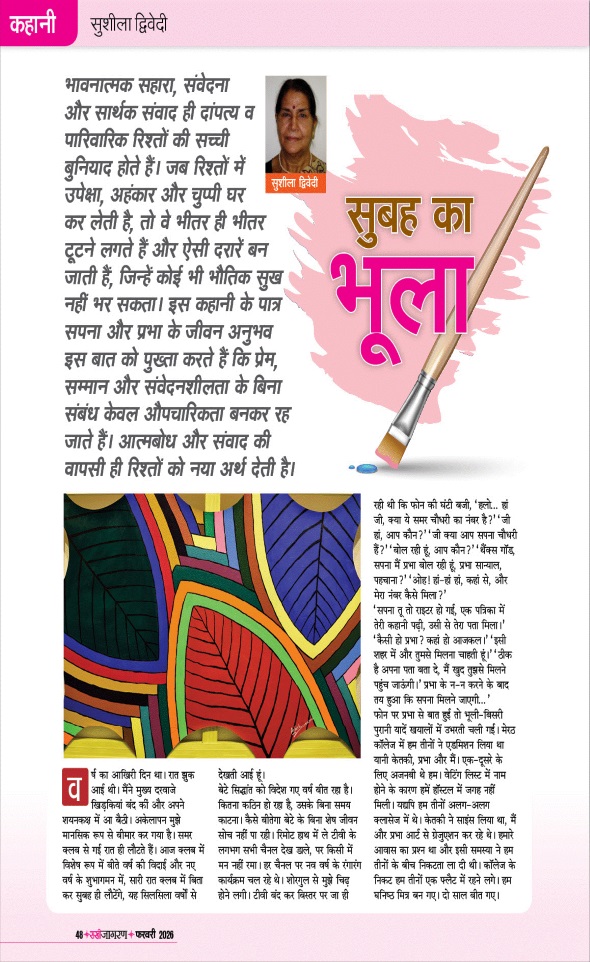 कहानी
सुशीला द्विवेदी
भावनात्मक सहारा, संवेदना
और सार्थक संवाद ही दांपत्य व
पारिवारिक रिश्तों की सच्ची
बुनियाद होते हैं। जब रिश्तों में
उपेक्षा, अहंकार और चुप्पी घर
कर लेती है, तो वे भीतर ही भीतर
टूटने लगते हैं और ऐसी दरारें बन
जाती हैं, जिन्हें कोई भी भौतिक सुख
नहीं भर सकता। इस कहानी के पात्र
सपना और प्रभा के जीवन अनुभव
इस बात को पुख्ता करते हैं कि प्रेम,
सम्मान और संवेदनशीलता के बिना
संबंध केवल औपचारिकता बनकर रह
जाते हैं। आत्मबोध और संवाद की
वापसी ही रिश्तों को नया अर्थ देती है।
सुशीला द्विवेदी
सुबह का
भूला
वर्ष का आखिरी दिन था। रात झुक
आई थी। मैंने मुख्य दरवाजे
खिड़कियां बंद कीं और अपने
शयनकक्ष में आ बैठी। अकेलापन मुझे
मानसिक रूप से बीमार कर गया है। समर
क्लब से गई रात ही लौटते हैं। आज क्लब में
विशेष रूप में बीते वर्ष की विदाई और नए
वर्ष के शुभागमन में, सारी रात क्लब में बिता
कर सुबह ही लौटेंगे, यह सिलसिला वर्षों से
देखती आई हूं।
बेटे सिद्धांत को विदेश गए वर्ष बीत रहा है।
कितना कठिन हो रहा है, उसके बिना समय
काटना। कैसे बीतेगा बेटे के बिना शेष जीवन
सोच नहीं पा रही। रिमोट हाथ में ले टीवी के
लगभग सभी चैनल देख डाले, पर किसी में
मन नहीं रमा। हर चैनल पर नव वर्ष के रंगारंग
कार्यक्रम चल रहे थे। शोरगुल से मुझे चिढ़
होने लगी। टीवी बंद कर बिस्तर पर जा ही
रही थी कि फोन की घंटी बजी, 'हलो... हां
जी, क्या ये समर चौधरी का नंबर है?' 'जी
हां, आप कौन?' 'जी क्या आप सपना चौधरी
हैं?' 'बोल रही हूं, आप कौन?' 'थैंक्स गॉड,
सपना मैं प्रभा बोल रही हूं, प्रभा सान्याल,
पहचाना?' 'ओह! हां-हां हां, कहां से, और
मेरा नंबर कैसे मिला?'
'सपना तू तो राइटर हो गई, एक पत्रिका में
तेरी कहानी पढ़ी, उसी से तेरा पता मिला।'
'कैसी हो प्रभा? कहां हो आजकल।' 'इसी
शहर में और तुमसे मिलना चाहती हूं।' 'ठीक
है अपना पता बता दे, मैं खुद तुझसे मिलने
पहुंच जाऊंगी।' प्रभा के न-न करने के बाद
तय हुआ कि सपना मिलने जाएगी...'
फोन पर प्रभा से बात हुई तो भूली-बिसरी
पुरानी यादें खयालों में उभरती चली गईं। मेरठ
कॉलेज में हम तीनों ने एडमिशन लिया था
यानी केतकी, प्रभा और मैं। एक-दूसरे के
लिए अजनबी थे हम। वेटिंग लिस्ट में नाम
होने के कारण हमें हॉस्टल में जगह नहीं
मिली। यद्यपि हम तीनों अलग-अलग
क्लासेज में थे। केतकी ने साइंस लिया था, मैं
और प्रभा आर्ट से ग्रेजुएशन कर रहे थे। हमारे
आवास का प्रश्न था और इसी समस्या ने हम
तीनों के बीच निकटता ला दी थी। कॉलेज के
निकट हम तीनों एक फ्लैट में रहने लगे। हम
घनिष्ठ मित्र बन गए। दो साल बीत गए।
48 सखी जागरण फरवरी 2026